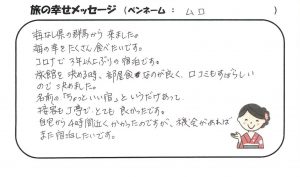 旅の幸せメッセージ（ペンネーム：ムロ）
海なし県の群馬から来ました。
海の幸をたくさん食べたいです。
コロナで3年以上ぶりの宿泊です。
旅館を決める時、部屋食なのが良く、口コミもすばらしい
ので決めました。
名前の「ちょっといい宿」というだけあって
接客も丁寧でとても良かったです。
自宅から4時間近くかかったのですが、機会があれば
また宿泊したいです。